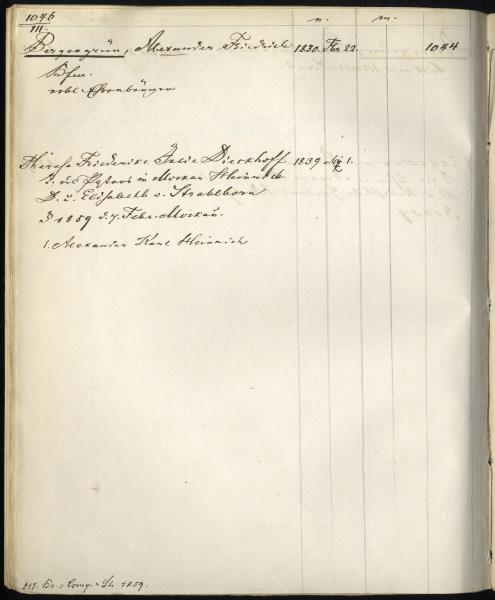 1046
III.
n. m.
Bergengrün, Alexander Friedrich 1830. Fbr 22. 1044
Kfm.
erbl. Ehrenbürger
Therese Friederike Julie Dieckhoff 1839 Mz 1.
T. des Pastors in Moskau Heinrich
D. u. Elisabeth v. Strahlborn
1859 d. 7. Febr. Moskau.
1. Alexander Karl Heinrich
1859.